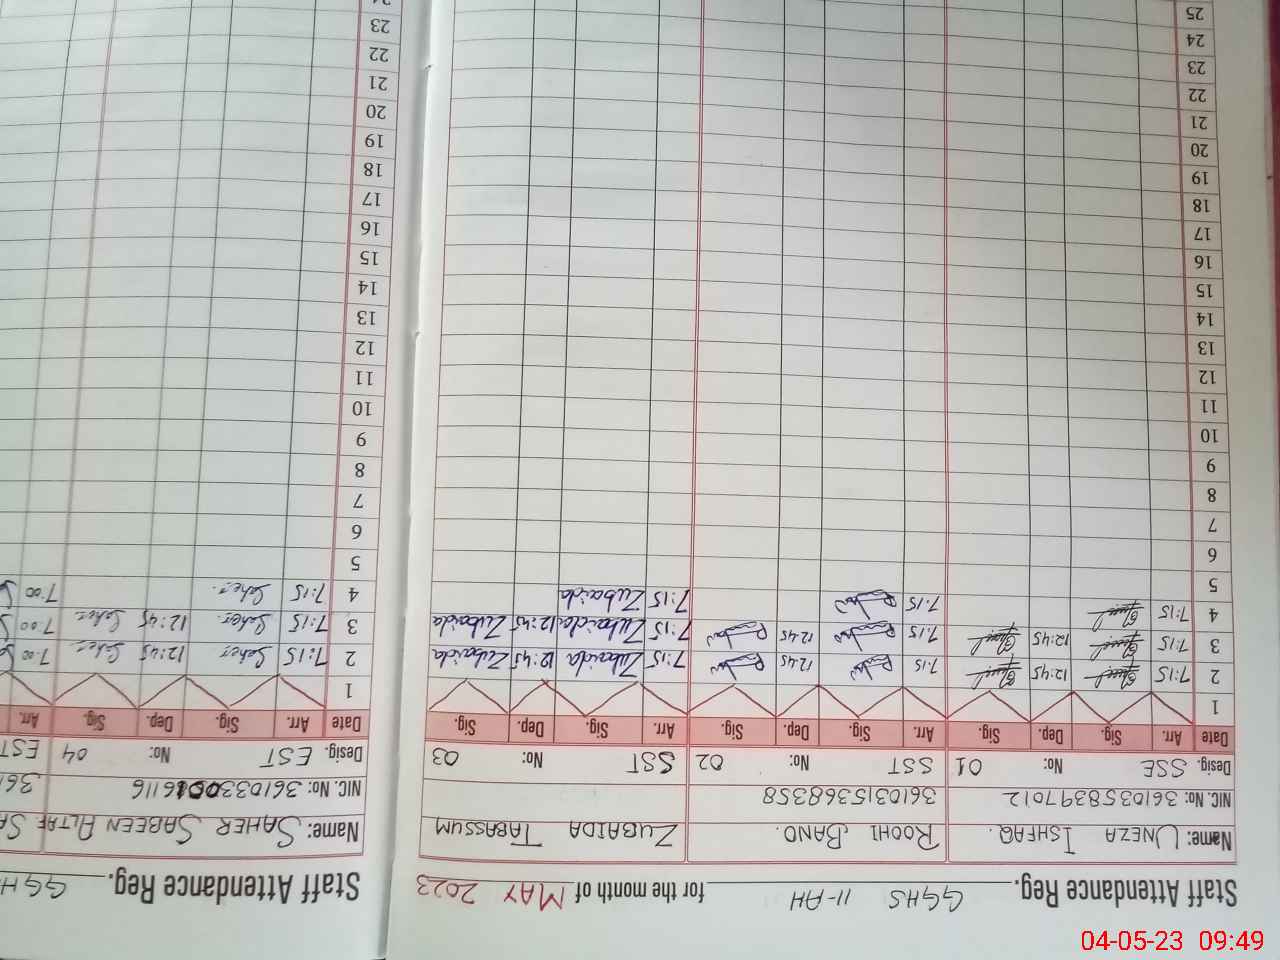 Staff Attendance Reg. GGHS 11-AH for the month of MAY 2023
Name: UNEZA ISHFAQ. ROOHI BANO. ZUBAIDA TABASSUM
NIC. No: 3610358397012 3610315368358
Desig. SSE No: 01 SST No: 02 SST No: 03
Date Arr. Sig. Dep. Sig. Arr. Sig. Dep. Sig. Arr. Sig. Dep. Sig.
1
2 7:15 12:45 7:15 12:45 7:15 Zubaida 12:45 Zubaida
3 7:15 12:45 7:15 12:45 7:15 Zubaida 12:45 Zubaida
4 7:15 7:15 7:15 Zubaida
5
6
7
8
9
10
11
12
13
14
15
16
17
18
19
20
21
22
23
24
25
Staff Attendance Reg. GGH
Name: SAHER SABEEN ALTAF SA
NIC. No: 361
Desig. EST No: 04 EST
Date Arr. Sig. Dep. Sig. Arr.
1
2 7:15 Saher 12:45 Saher 7:00
3 7:15 Saher 12:45 Saher 7:00
4 7:15 Saher 7:00
5
6
7
8
9
10
11
12
13
14
15
16
17
18
19
20
21
22
23
24
04-05-23 09:49